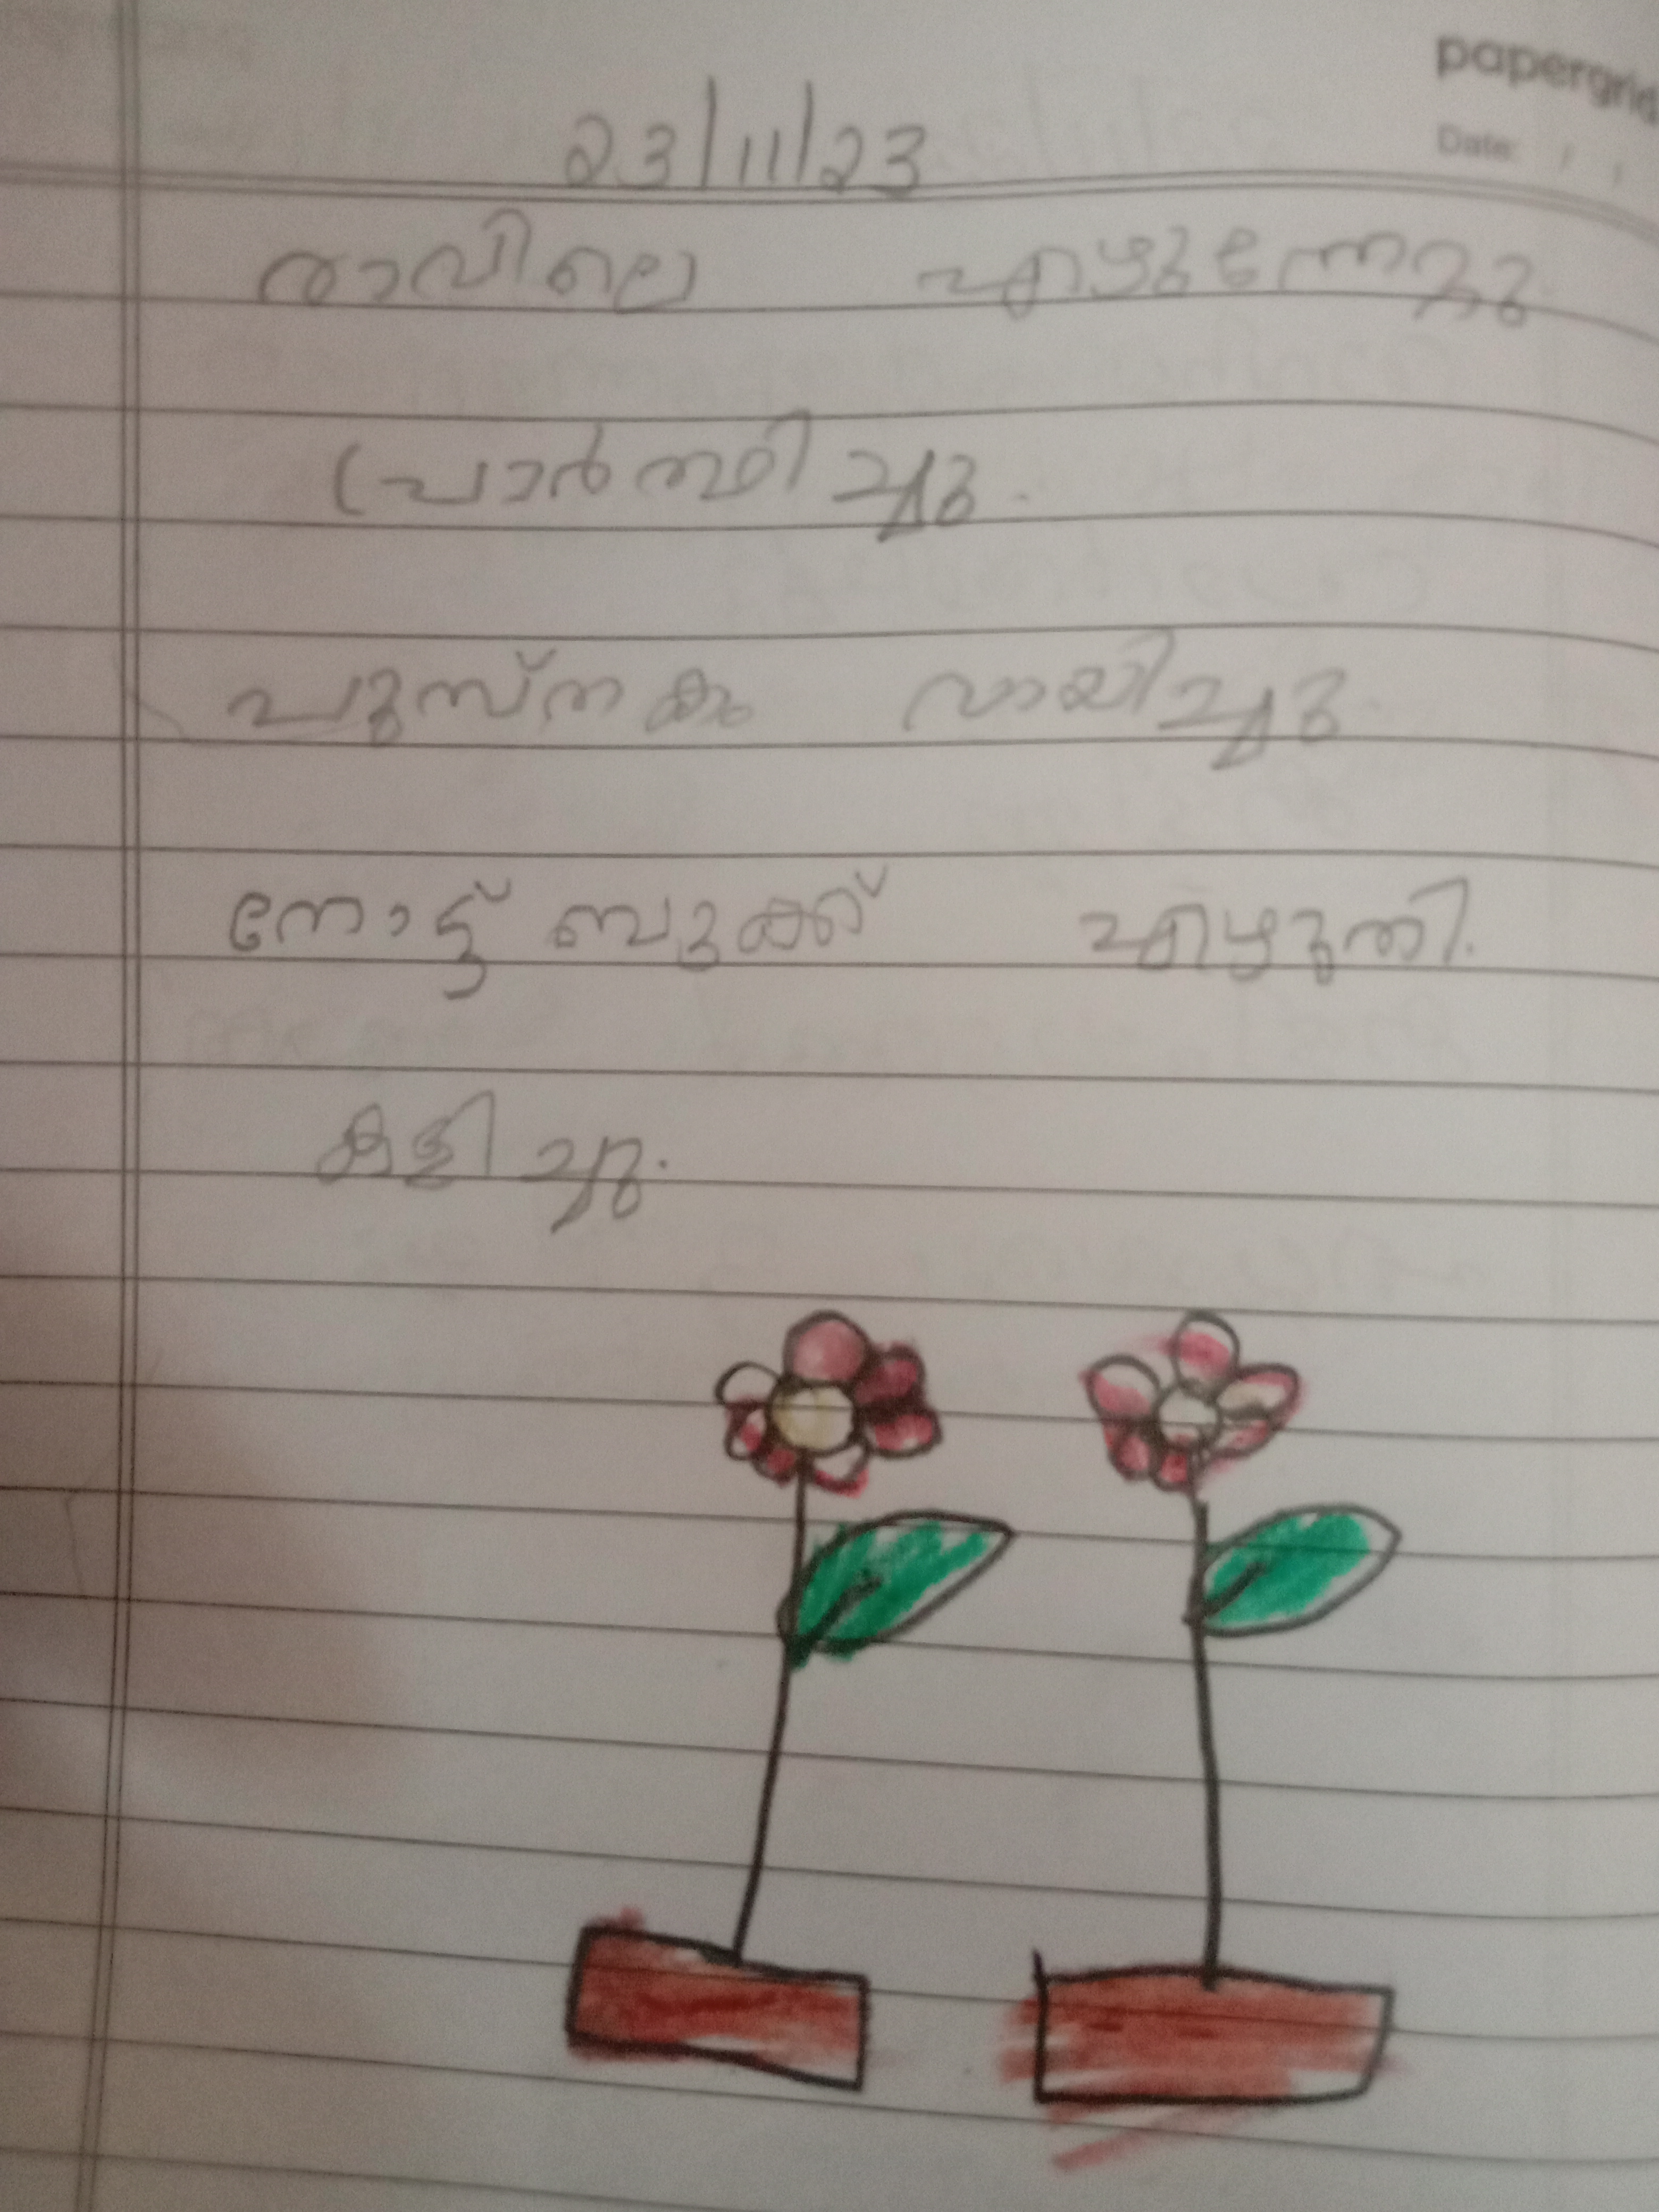 papergrid
Date: / /
23/11/23
രാവിലെ എഴുന്നേറ്റു
പ്രാർത്ഥിച്ചു.
പുസ്തകം വായിച്ചു.
നോട്ട് ബുക്ക് എഴുതി.
കളിച്ചു.